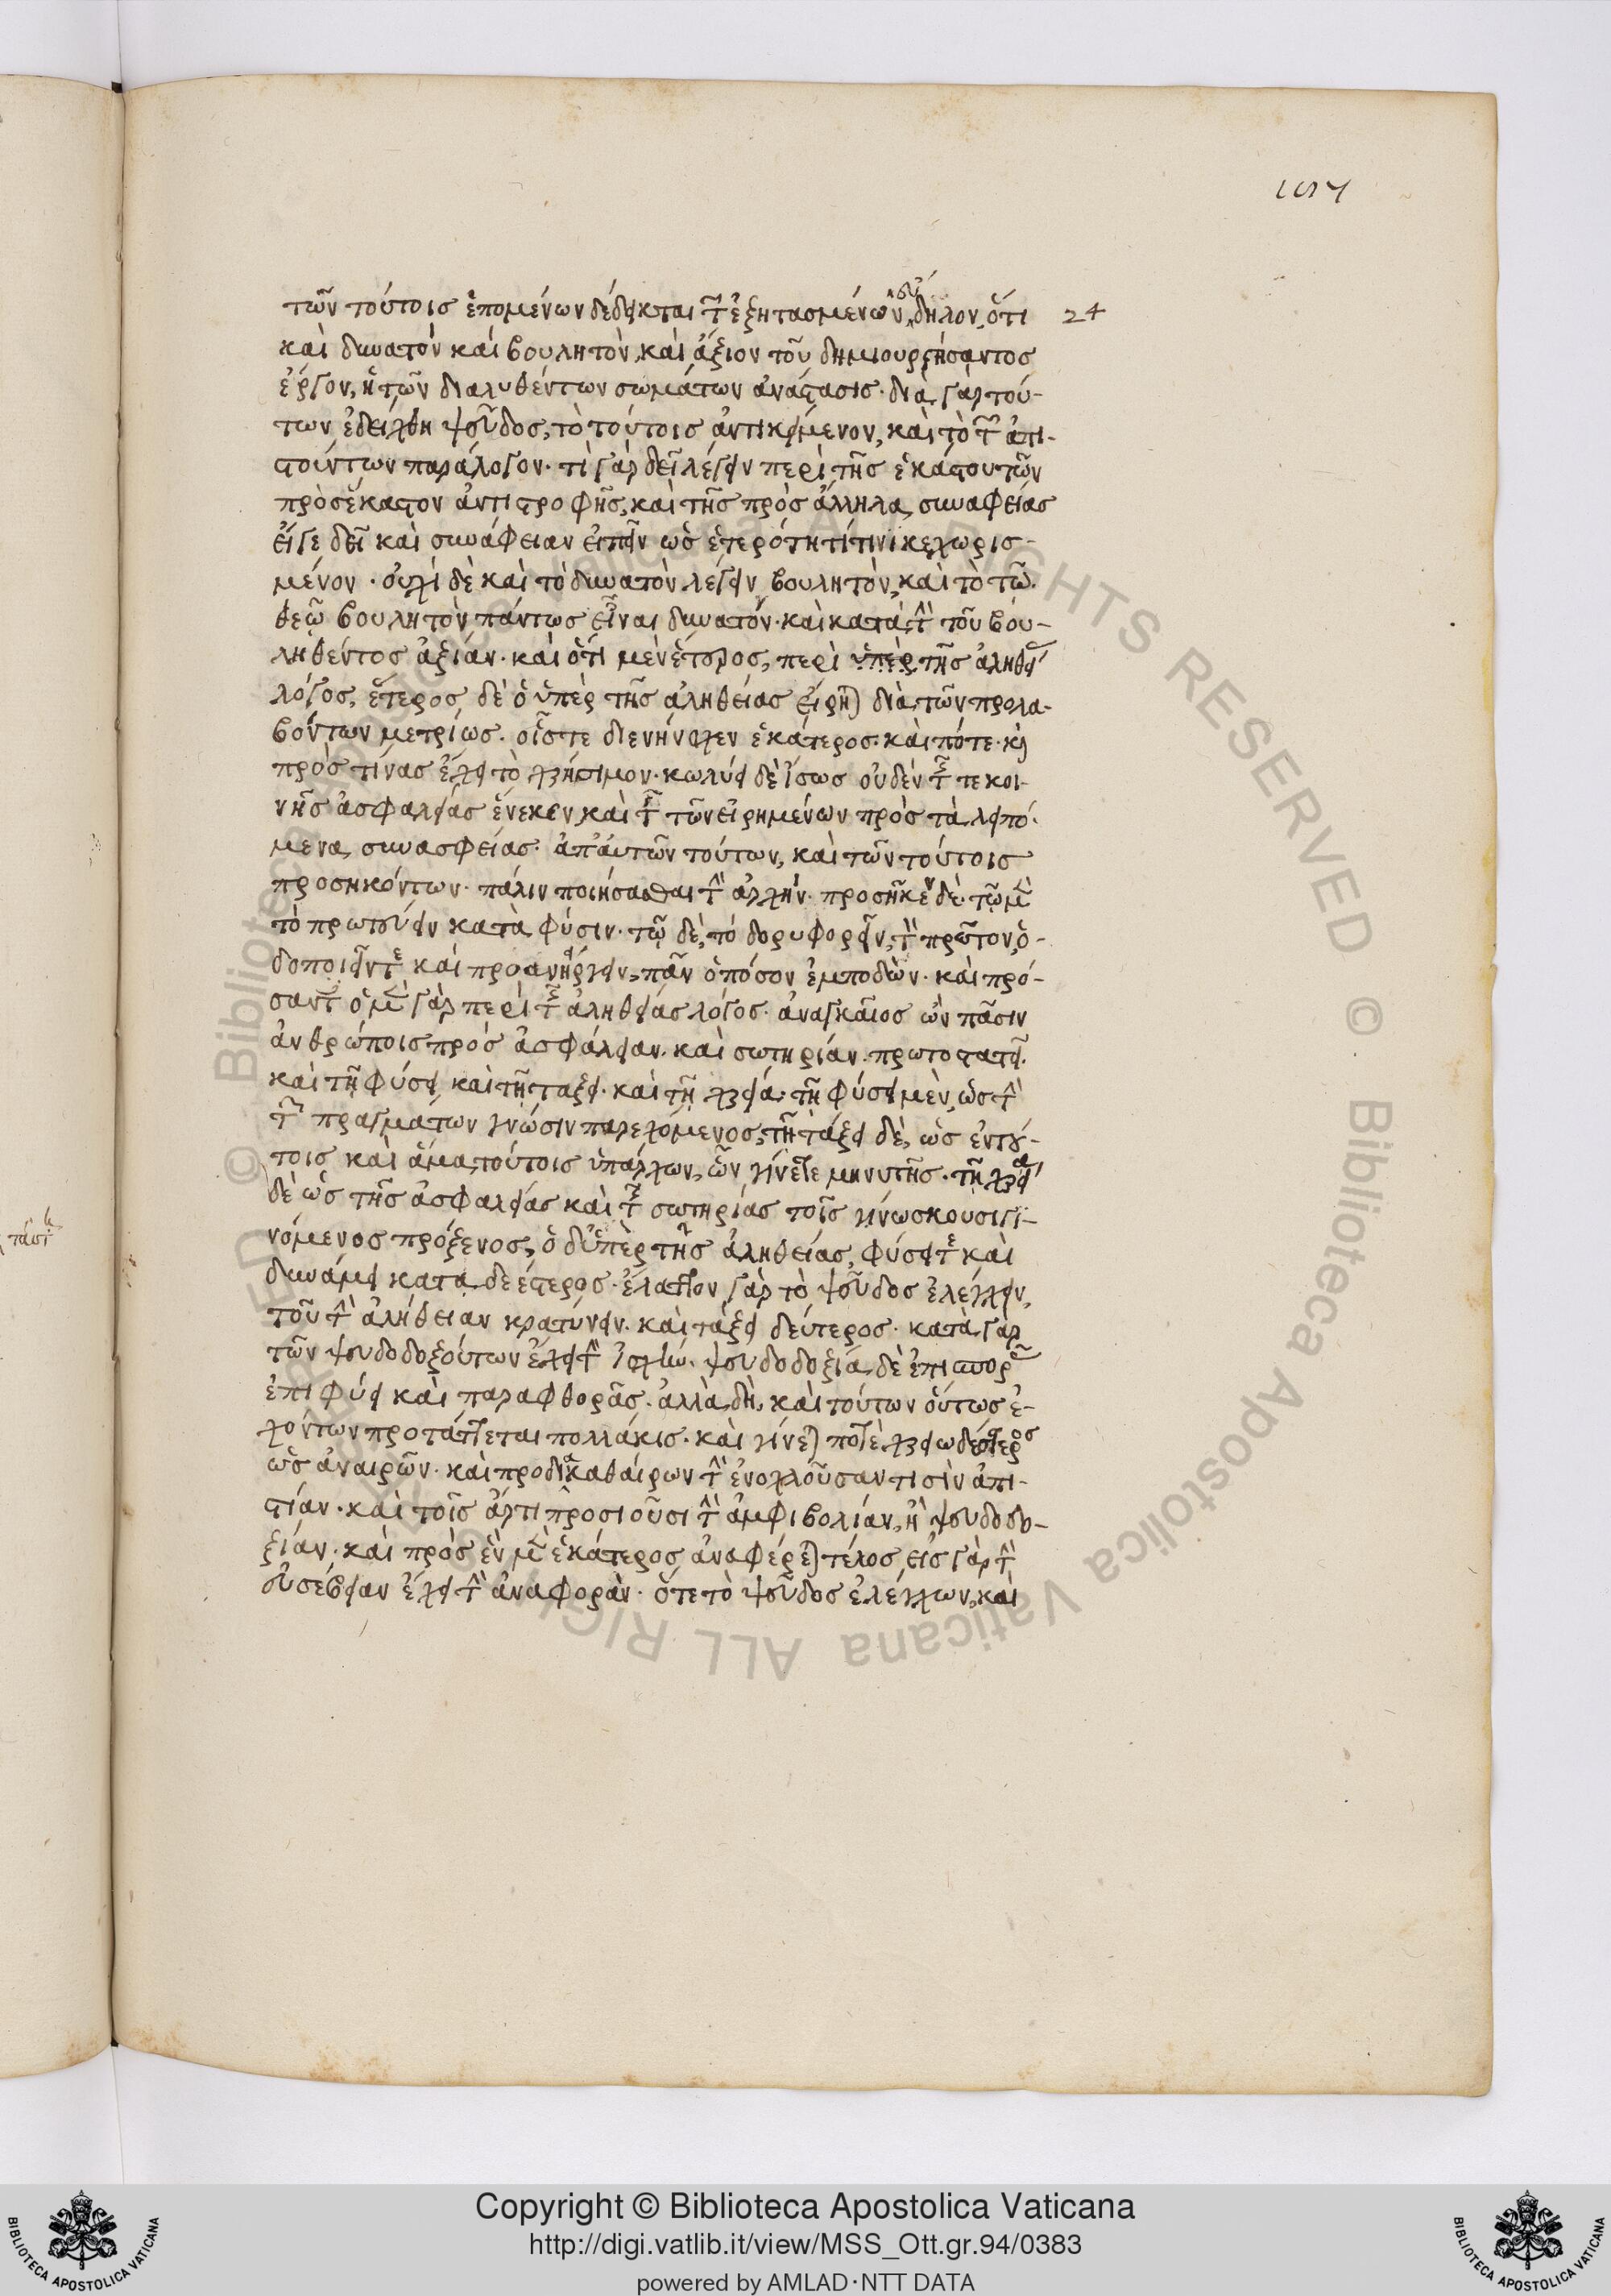 1 τῶν τούτοις ἑπομένων δέδεικται τῶν ἐξητασμένων οὖν, δῆλον, ὅτι 24
καὶ δυνατὸν καὶ βουλητὸν, καὶ ἄξιον τοῦ δημιουργήσαντος
ἔργον, ἡ τῶν διαλυθέντων σωμάτων ἀνάστασις. διὰ γὰρ τού-
των ἐδείχθη ψεῦδος, τὸ τούτοις ἀντικείμενον, καὶ τὸ τῶν ἀπι-
στούντων παράλογον. τί γὰρ δεῖ λέγειν περὶ τῆς ἑκάστου τῶν
πρὸς ἕκαστον ἀντιστροφῆς, καὶ τῆς πρὸς ἄλληλα συναφείας
εἴγε δεῖ καὶ συνάφειαν εἰπεῖν ὡς ἑτερότητί τινι κεχωρισ-
μένον. οὐχὶ δὲ καὶ τὸ δυνατὸν λέγειν βουλητὸν, καὶ τὸ τῷ
θεῷ βουλητὸν πάντως εἶναι δυνατόν. καὶ κατὰ τὴν τοῦ βου-
ληθέντος ἀξίαν. καὶ ὅτι μὲν ἕτερος, περὶ ὑπὲρ τῆς ἀληθείας
λόγος, ἕτερος δὲ ὁ ὑπὲρ τῆς ἀληθείας εἴρηται διὰ τῶν προλα-
βόντων μετρίως. οἷς τε διενήνοχεν ἑκάτερος. καὶ πότε. καὶ
πρὸς τίνας ἔχει τὸ χρήσιμον. κωλύει δὲ ἴσως οὐδὲν τῆς τε κοι-
νῆς ἀσφαλείας ἕνεκεν, καὶ τῆς τῶν εἰρημένων πρὸς τὰ λειπό-
μενα συνασφείας. ἀπ' αὐτῶν τούτων, καὶ τῶν τούτοις
προσηκόντων. πάλιν ποιήσασθαι τὴν ἀρχήν. προσῆκεν δὲ τῷ μὲν
τὸ πρωτεύειν κατὰ φύσιν. τῷ δὲ, τὸ δορυφορεῖν, τὴν πρῶτον, ὁ-
δοποιεῖν τε καὶ προανείργειν, πᾶν ὁπόσον ἐμποδὼν. καὶ πρό-
σαντες ὁ μὲν γὰρ περὶ τῆς ἀληθείας λόγος. ἀναγκαῖος ὢν πᾶσιν
ἀνθρώποις πρὸς ἀσφάλειαν. καὶ σωτηρίαν. πρωτοστατεῖ.
καὶ τῇ φύσει καὶ τῇ τάξει. καὶ τῇ χρείᾳ. τῇ φύσει μὲν, ὡς τὴν
τῶν πραγμάτων γνῶσιν παρεχόμενος, τῇ τάξει δὲ, ὡς ἐν τού-
τοις καὶ ἅμα τούτοις ὑπάρχων, ὧν γίνεται μηνυτής. τῇ χρείᾳ
δὲ ὡς τῆς ἀσφαλείας καὶ τῆς σωτηρίας τοῖς γινώσκουσι γι-
νόμενος πρόξενος, ὁ δ' ὑπὲρ τῆς ἀληθείας, φύσει τε καὶ
δυνάμει καταδεέστερος. ἔλαττον γὰρ τὸ ψεῦδος ἐλέγχειν,
τοῦ τὴν ἀλήθειαν κρατύνειν. καὶ τάξει δεύτερος. κατὰ γὰρ
τῶν ψευδοδοξούντων ἔχει τὴν ἰσχύν. ψευδοδοξία δὲ ἐπισπορᾶς
ἐπιφύει καὶ παραφθορᾶς. ἀλλὰ δὴ καὶ τούτων οὕτως ἐ-
χόντων προτάττεται πολλάκις. καὶ γίνεταί ποτε χρειωδέστερος
ὡς ἀναιρῶν. καὶ προδιακαθαίρων τὴν ἐνοχλοῦσάν τισιν ἀπι-
στίαν. καὶ τοῖς ἄρτι προσιοῦσι τὴν ἀμφιβολίαν, ἢ ψευδοδο-
ξίαν. καὶ πρὸς ἓν μὲν ἑκάτερος ἀναφέρεται τέλος, εἰς γὰρ τὴν
εὐσέβειαν ἔχει τὴν ἀναφορὰν. ὅ τε τὸ ψεῦδος ἐλέγχων, καὶ
Copyright © Biblioteca Apostolica Vaticana
http://digi.vatlib.it/view/MSS_Ott.gr.94/0383
powered by AMLAD·NTT DATA